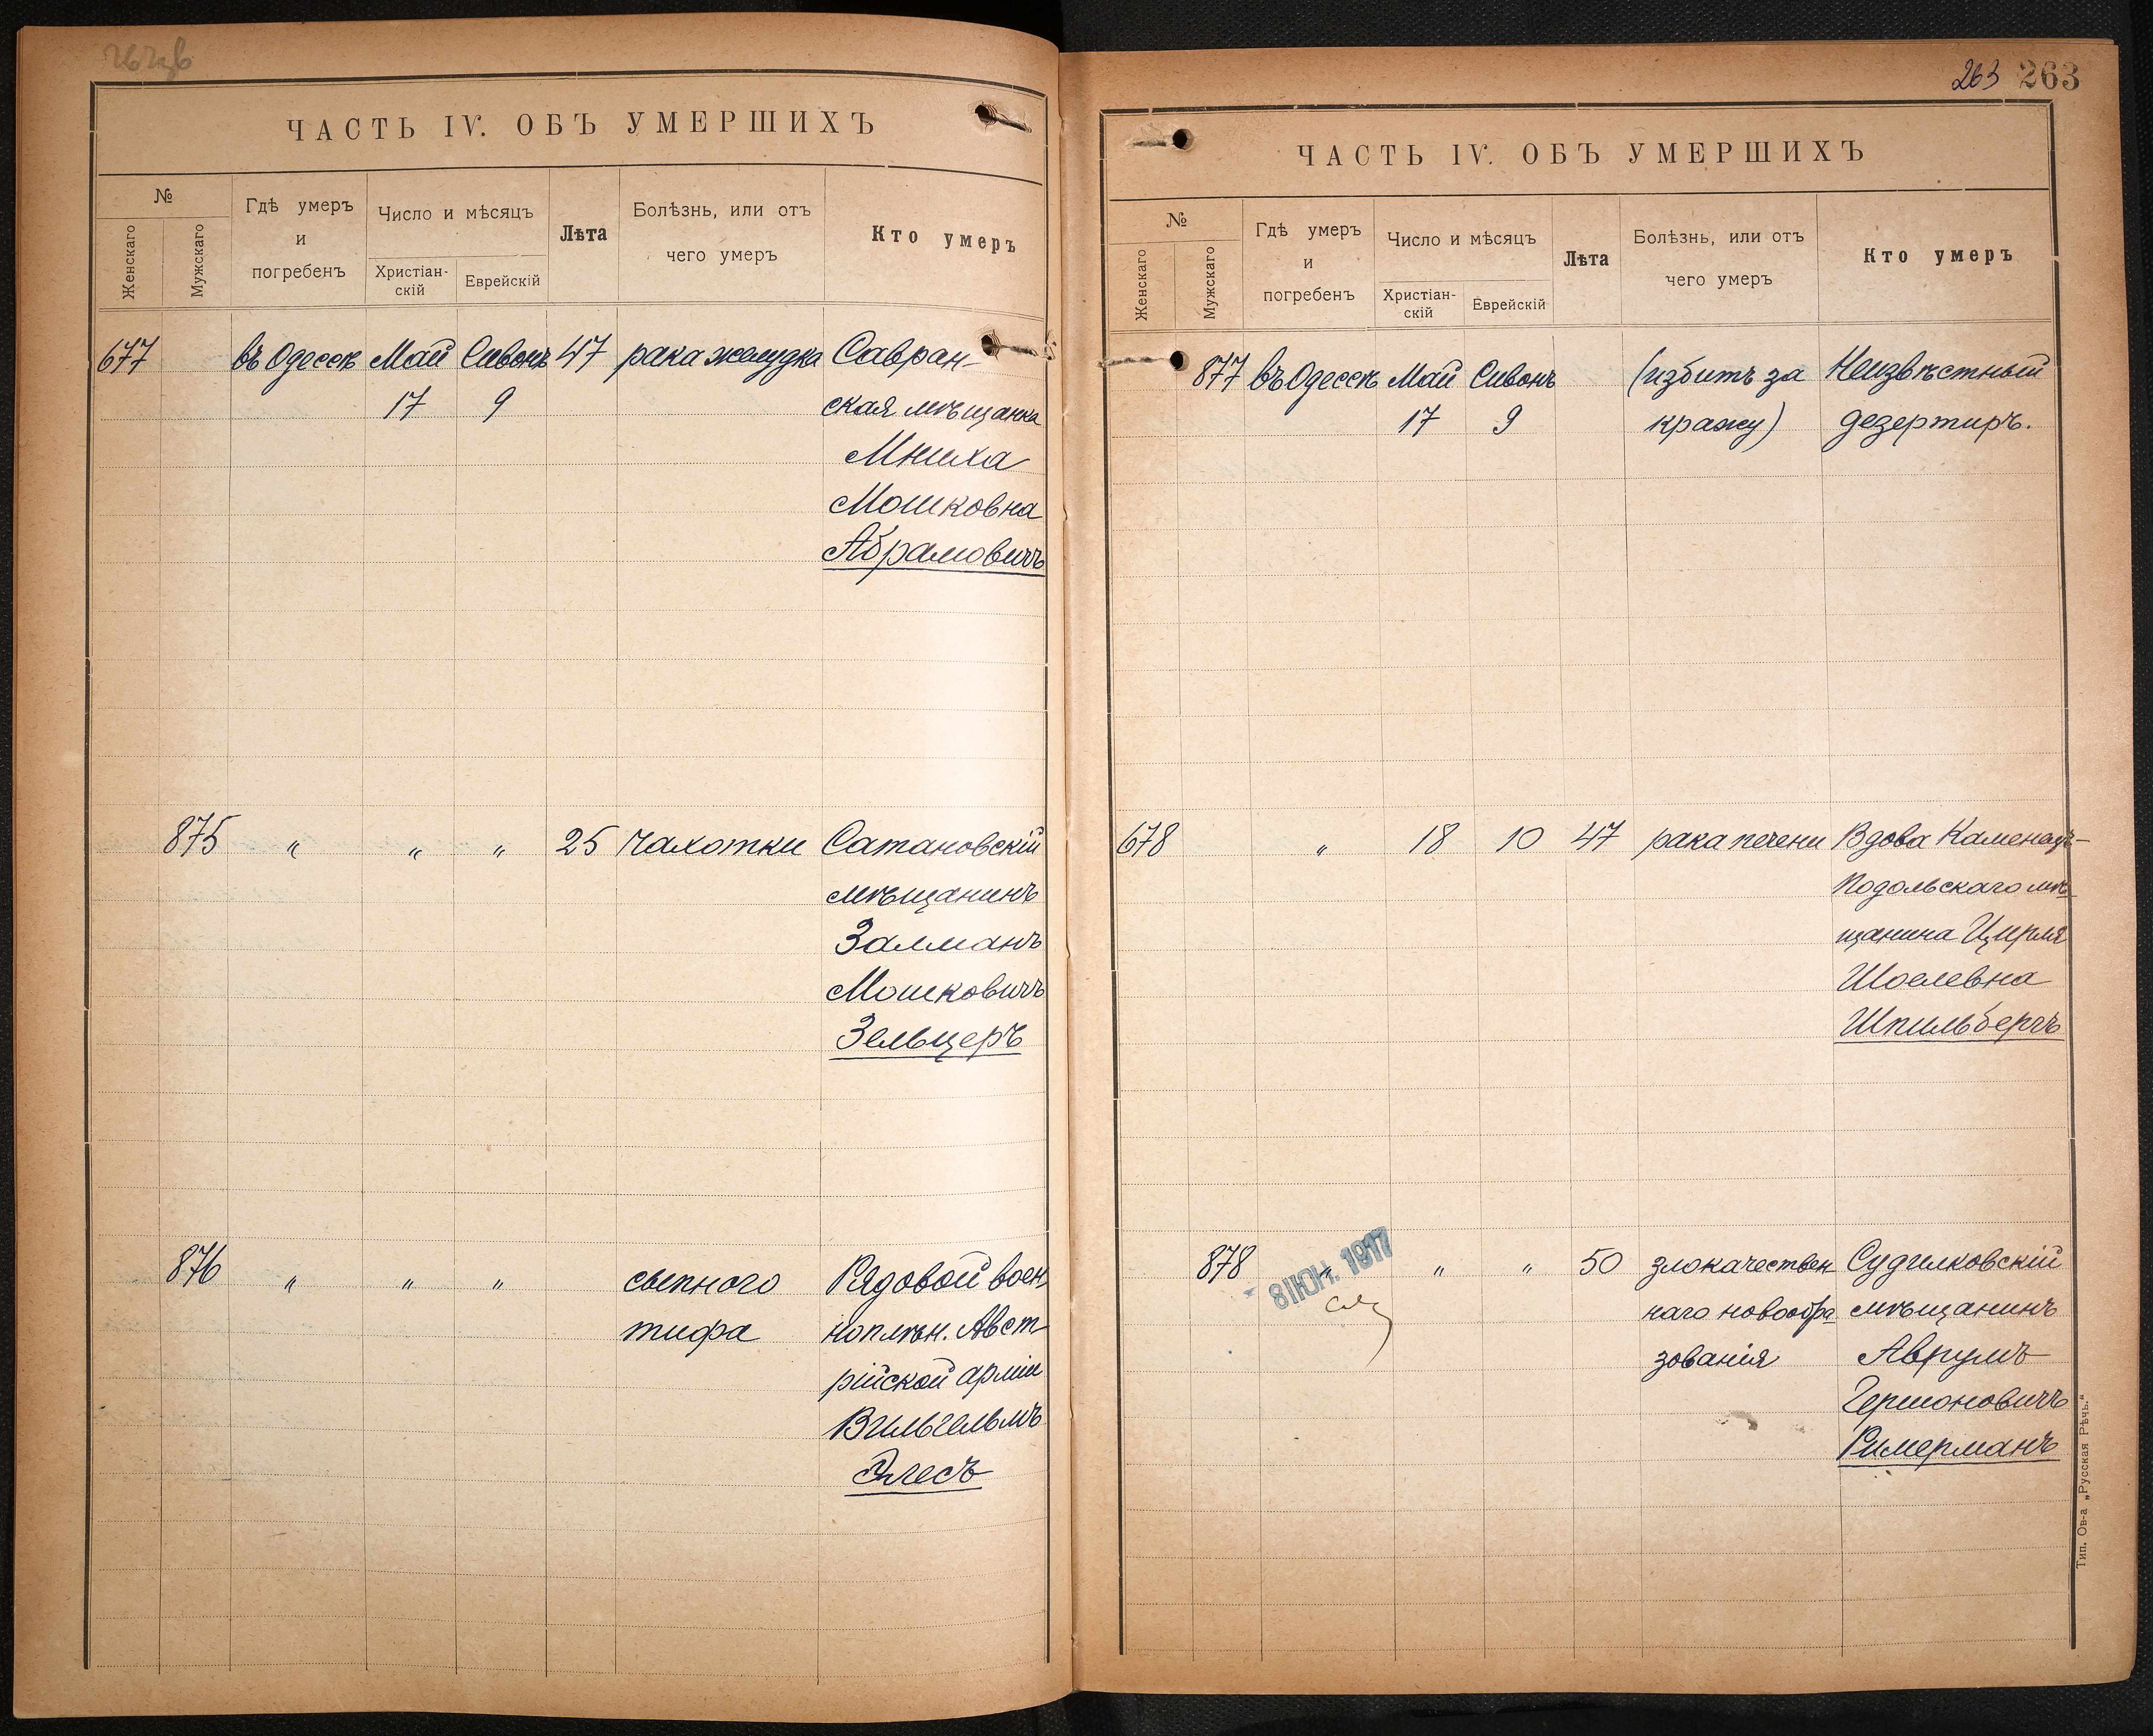 ЧАСТЬ IV. ОБЪ УМЕРШИХЪ
№
Женскаго
Мужскаго
Гдѣ умеръ
и
погребенъ
Число и мѣсяцъ
Христіан-
скій
Еврейскій
Лѣта
Болѣзнь, или отъ
чего умеръ
Кто умеръ
677 въ Одессѣ Май Сивонъ 47 рака желудка Савран-
17 9 ская мѣщанка
Мниха
Мошковна
Абрамовичъ
875 " " " 25 Чахотки Сатановскій
мѣщанинъ
Залманъ
Мошковичъ
Зельцеръ
876 " " " сыпного Рядовой воен
тифа ноплѣн. Авст
рійской арміи
Вильгельмъ
263 263
ЧАСТЬ IV. ОБЪ УМЕРШИХЪ
№
Женскаго
Мужскаго
Гдѣ умеръ
и
погребенъ
Число и мѣсяцъ
Христіан-
скій
Еврейскій
Лѣта
Болѣзнь, или отъ
чего умеръ
Кто умеръ
877 въ Одессѣ Май Сивонъ (избитъ за Неизвѣстный
17 9 кражу) дезертиръ.
678 " 18 10 47 рака печени Вдова Каменец-
Подольскаго мѣ
щанина Цирля
Шоелевна
Шпильбергъ
878 " " " 50 злокачествен Судилковскій
8 ІЮН. 1917
наго новообра мѣщанинъ
зованія Аврумъ
Гершоновичъ
Римерманъ
Тип. Ов-а „Русская Рѣчь."